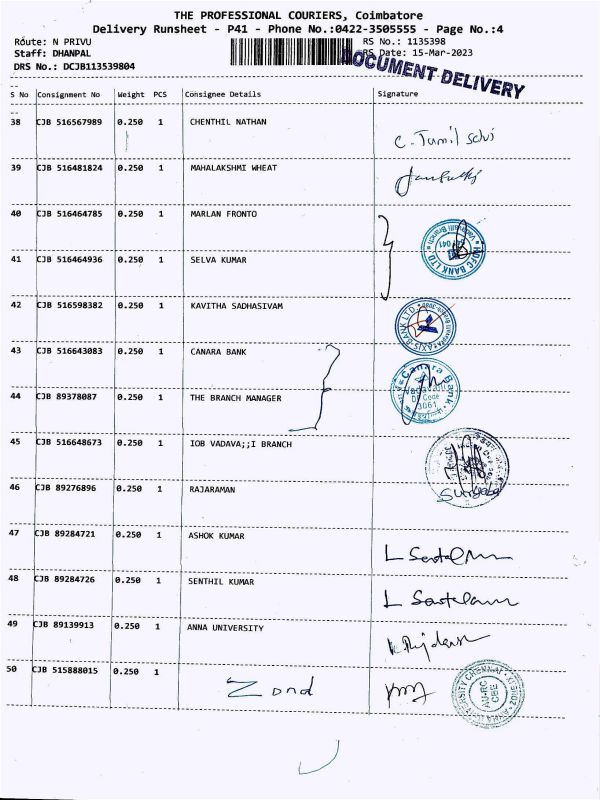 THE PROFESSIONAL COURIERS, Coimbatore
Delivery Runsheet - P41 - Phone No.:0422-3505555 - Page No.:4
Route: N PRIVU RS No.: 1135398
Staff: DHANPAL RS Date: 15-Mar-2023
DRS No.: DCJB113539804
DOCUMENT DELIVERY
--
S No Consignment No Weight PCS Consignee Details Signature
--
38 CJB 516567989 0.250 1 CHENTHIL NATHAN
C. Tamil Selvi
39 CJB 516481824 0.250 1 MAHALAKSHMI WHEAT
40 CJB 516464785 0.250 1 MARLAN FRONTO
HDFC BANK LTD. Vadavalli Branch 641 041
41 CJB 516464936 0.250 1 SELVA KUMAR
42 CJB 516598382 0.250 1 KAVITHA SADHASIVAM
AXIS BANK LTD.
43 CJB 516643083 0.250 1 CANARA BANK
Canara Bank
DP Code
44 CJB 89378087 0.250 1 THE BRANCH MANAGER
45 CJB 516648673 0.250 1 IOB VADAVA;;I BRANCH
46 CJB 89276896 0.250 1 RAJARAMAN
47 CJB 89284721 0.250 1 ASHOK KUMAR
48 CJB 89284726 0.250 1 SENTHIL KUMAR
49 CJB 89139913 0.250 1 ANNA UNIVERSITY
50 CJB 515888015 0.250 1
Z ond
ANNA UNIVERSITY CHENNAI
AU-RC
CBE